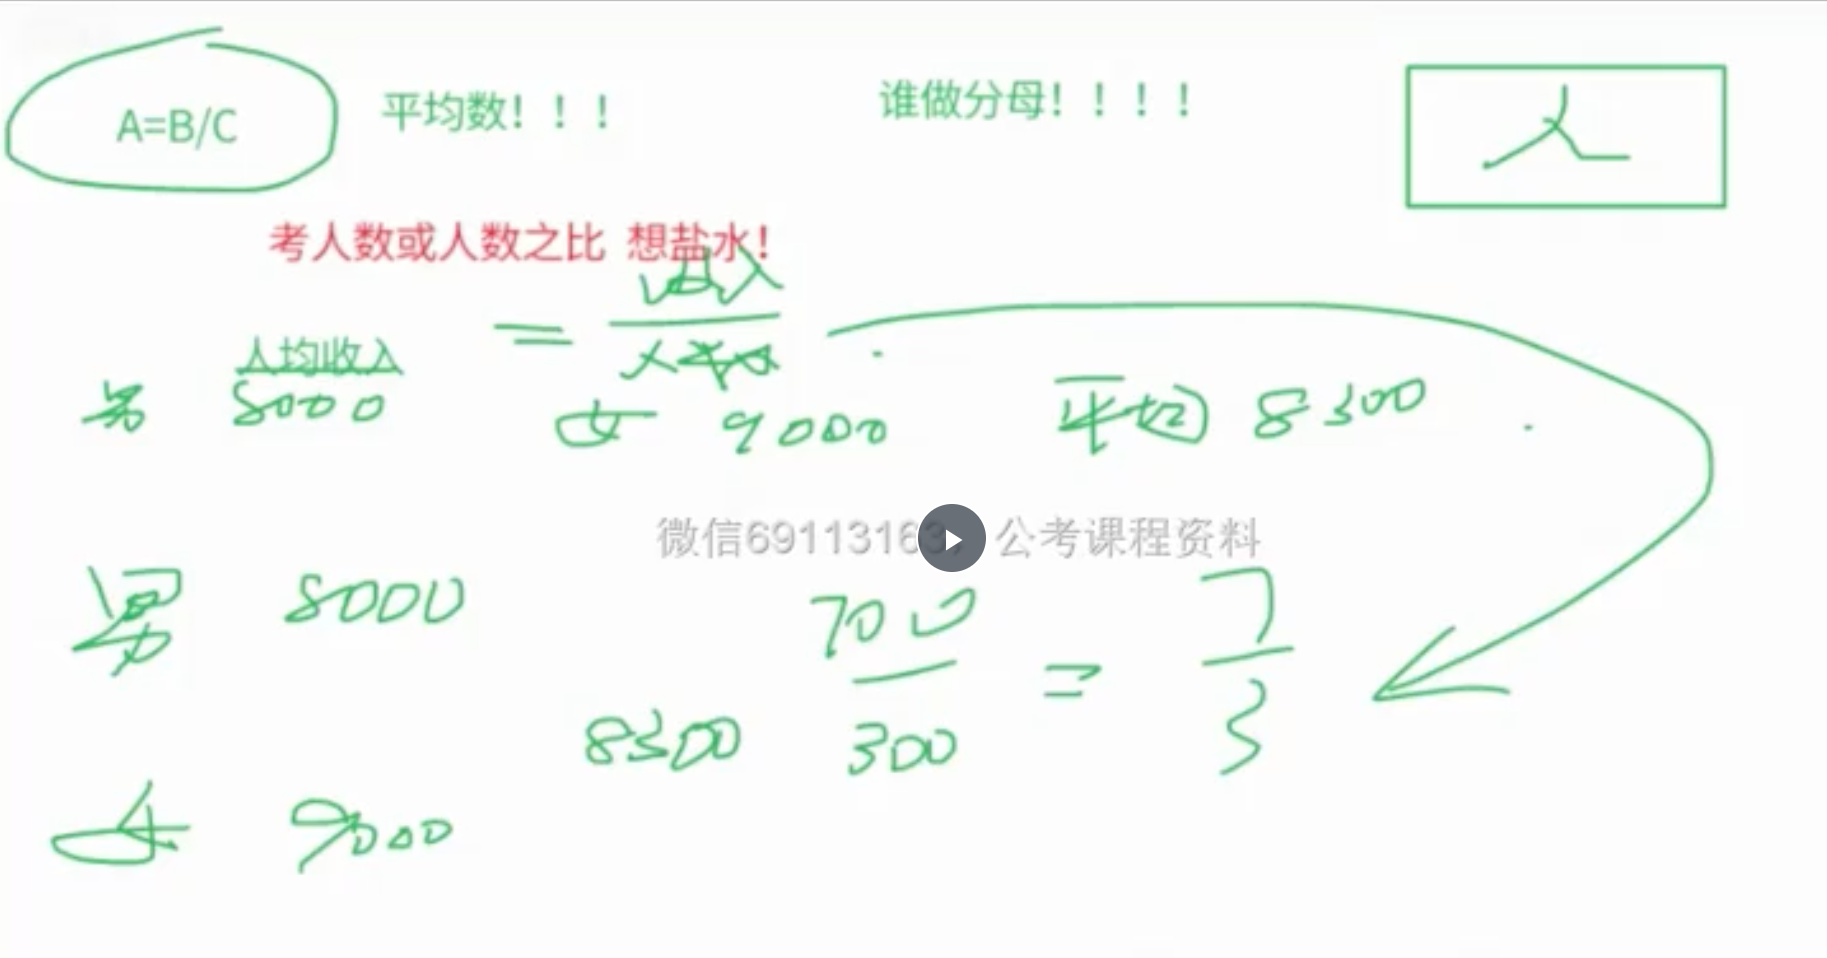 A=B/C 平均数！！！ 谁做分母！！！！ 人
考人数或人数之比 想盐水！
人均收入 = 收入
人数
男 8000 女 9000 平均 8300
微信6911316 公考课程资料
男 8000
8300 700/300 = 7/3
女 9000